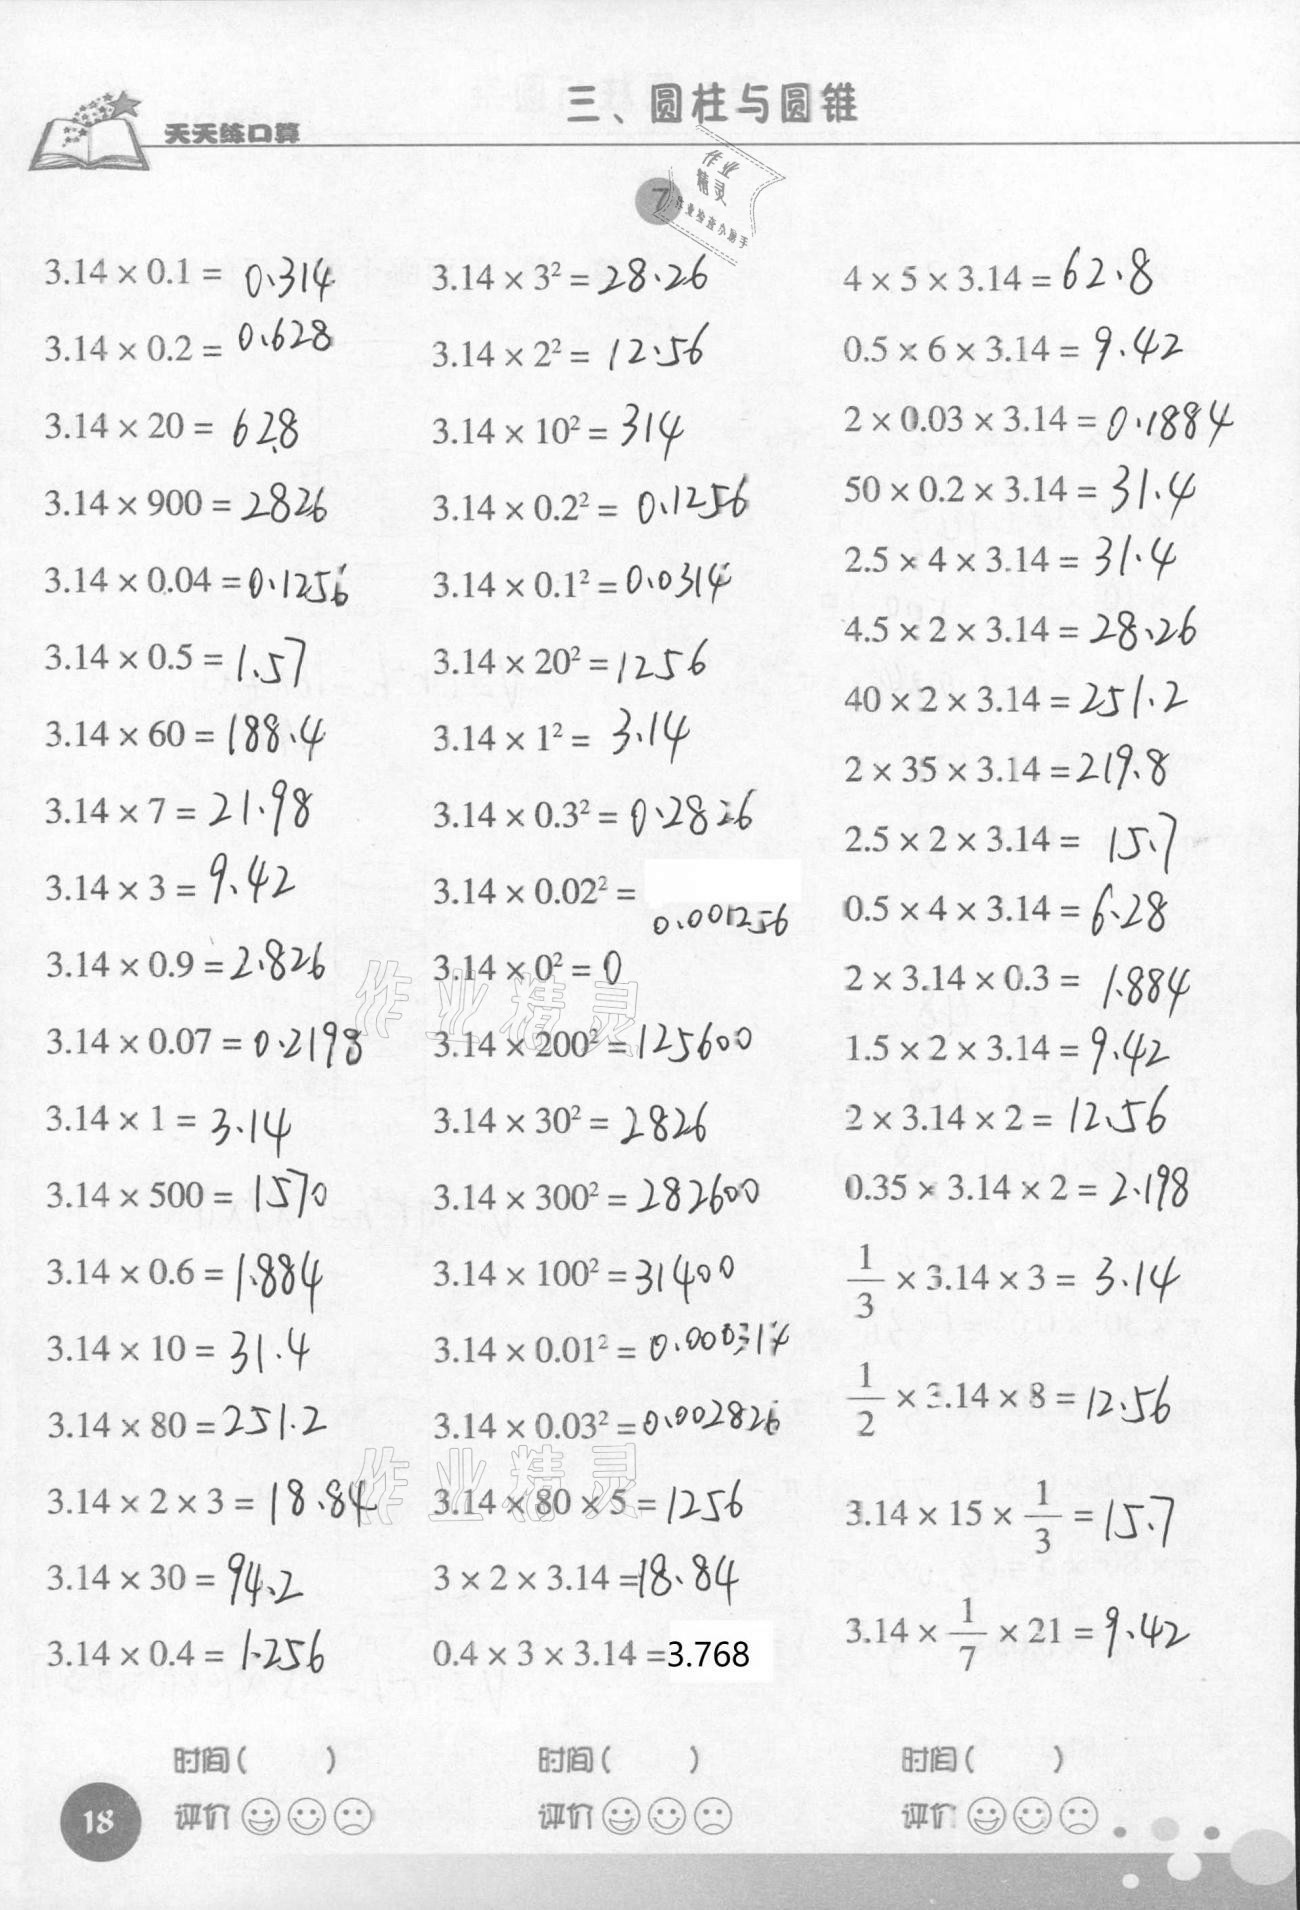 三、圆柱与圆锥
天天练口算
7
作业
精灵
作业检查小助手
3.14 × 0.1 = 0.314
3.14 × 0.2 = 0.628
3.14 × 20 = 62.8
3.14 × 900 = 2826
3.14 × 0.04 = 0.1256
3.14 × 0.5 = 1.57
3.14 × 60 = 188.4
3.14 × 7 = 21.98
3.14 × 3 = 9.42
3.14 × 0.9 = 2.826
3.14 × 0.07 = 0.2198
3.14 × 1 = 3.14
3.14 × 500 = 1570
3.14 × 0.6 = 1.884
3.14 × 10 = 31.4
3.14 × 80 = 251.2
3.14 × 2 × 3 = 18.84
3.14 × 30 = 94.2
3.14 × 0.4 = 1.256
时间(　　)
评价
3.14 × 3² = 28.26
3.14 × 2² = 12.56
3.14 × 10² = 314
3.14 × 0.2² = 0.1256
3.14 × 0.1² = 0.0314
3.14 × 20² = 1256
3.14 × 1² = 3.14
3.14 × 0.3² = 0.2826
3.14 × 0.02² = 0.001256
3.14 × 0² = 0
3.14 × 200² = 125600
3.14 × 30² = 2826
3.14 × 300² = 282600
3.14 × 100² = 31400
3.14 × 0.01² = 0.000314
3.14 × 0.03² = 0.002826
3.14 × 80 × 5 = 1256
3 × 2 × 3.14 = 18.84
0.4 × 3 × 3.14 = 3.768
时间(　　)
评价
4 × 5 × 3.14 = 62.8
0.5 × 6 × 3.14 = 9.42
2 × 0.03 × 3.14 = 0.1884
50 × 0.2 × 3.14 = 31.4
2.5 × 4 × 3.14 = 31.4
4.5 × 2 × 3.14 = 28.26
40 × 2 × 3.14 = 251.2
2 × 35 × 3.14 = 219.8
2.5 × 2 × 3.14 = 15.7
0.5 × 4 × 3.14 = 6.28
2 × 3.14 × 0.3 = 1.884
1.5 × 2 × 3.14 = 9.42
2 × 3.14 × 2 = 12.56
0.35 × 3.14 × 2 = 2.198
1/3 × 3.14 × 3 = 3.14
1/2 × 3.14 × 8 = 12.56
3.14 × 15 × 1/3 = 15.7
3.14 × 1/7 × 21 = 9.42
时间(　　)
评价
作业精灵
作业精灵
18